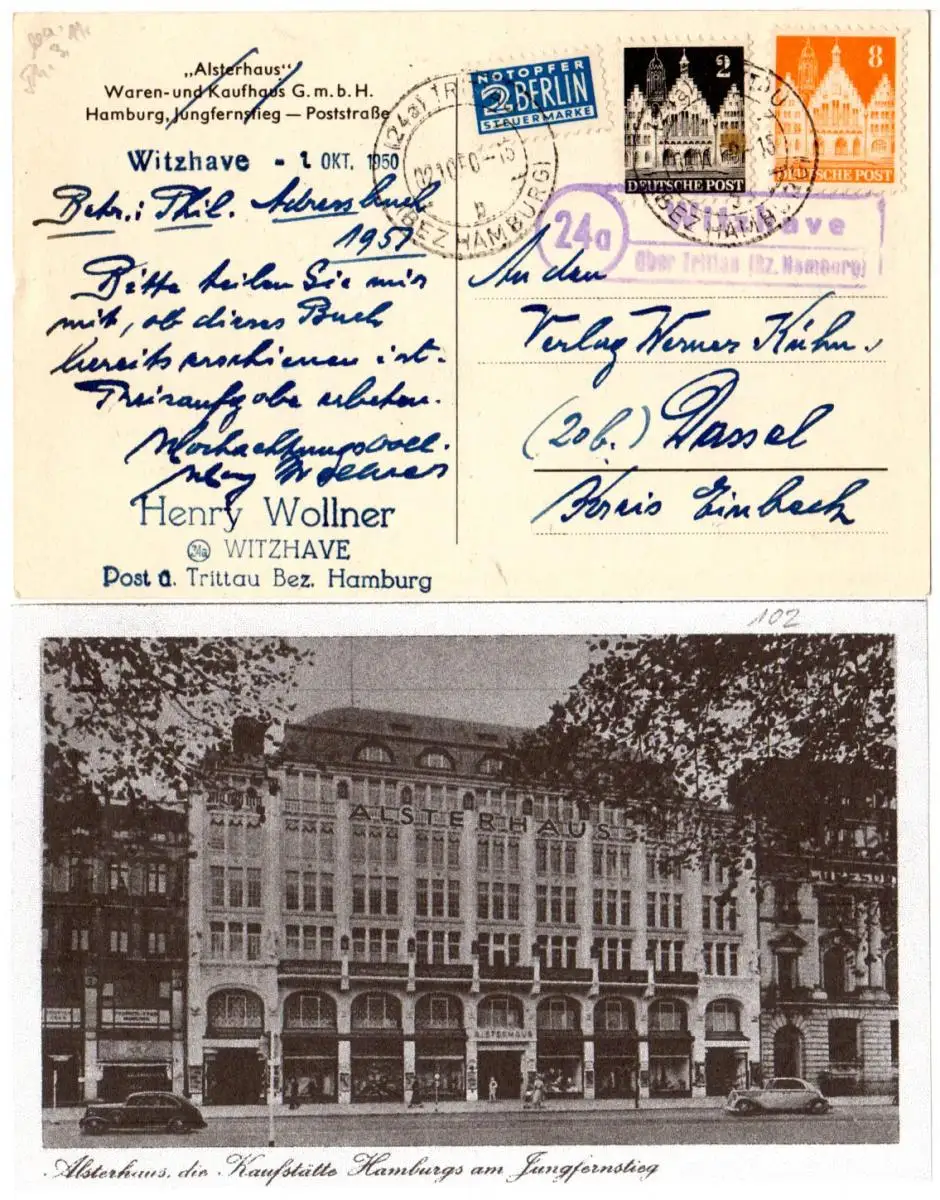 „Alsterhaus“
Waren-und Kaufhaus G.m.b.H.
Hamburg, Jungfernstieg — Poststraße
Witzhave - 1. OKT. 1950
Betr.: Phil. Adressbuch
1951
Bitte teilen Sie mir
mit, ob dieses Buch
bereits erschienen ist.
Preisaufgabe erbeten.
Hochachtungsvoll.
Henry Wollner
Henry Wollner
24a WITZHAVE
Post ü. Trittau Bez. Hamburg
NOTOPFER
2 BERLIN
STEUERMARKE
2
DEUTSCHE POST
8
DEUTSCHE POST
(24a) TRITTAU
02.10.50-15
b
(BEZ HAMBURG)
24a Witzhave
über Trittau (Bz. Hamburg)
An den
Verlag Werner Kühn,
(20b.) Dassel
Kreis Einbeck
102
ALSTERHAUS
ALSTERHAUS
Alsterhaus, die Kaufstätte Hamburgs am Jungfernstieg